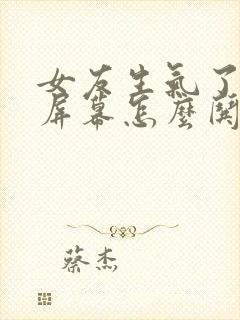 女友生氣了
屏幕怎麼開
蔡杰